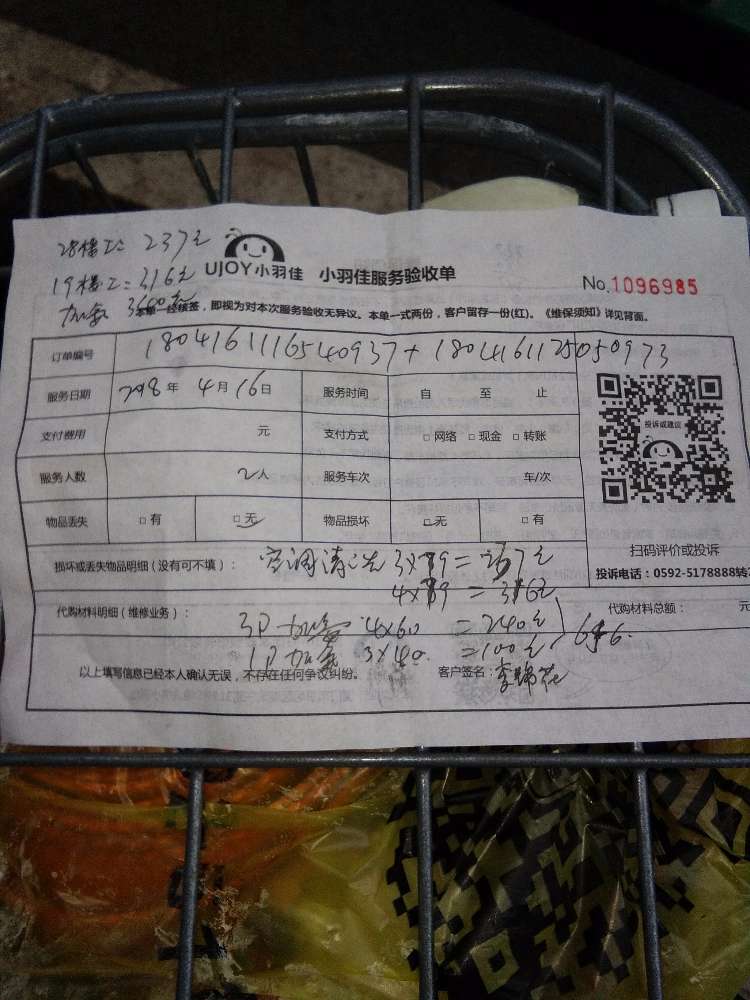 28楼工: 237元
19楼工: 316元
UJOY小羽佳 小羽佳服务验收单
No.1096985
本单一经核签,即视为对本次服务验收无异议。本单一式两份,客户留存一份(红)。《维保须知》详见背面。
订单编号 1804161116540937+1804161125050973
服务日期 2018年 4月16日 服务时间 自 至 止
支付费用 元 支付方式 □网络 □现金 □转账
投诉或建议
服务人数 2人 服务车次 车/次
物品丢失 □有 □无 物品损坏 □无 □有
扫码评价或投诉
损坏或丢失物品明细(没有可不填): 空调清洗 3×79=237元
投诉电话:0592-5178888转
4×79=316元
代购材料明细(维修业务): 代购材料总额: 元
3P 加氟 4×60 =240元
1P 加氟 3×40 =100元
以上填写信息已经本人确认无误,不存在任何争议纠纷。 客户签名: